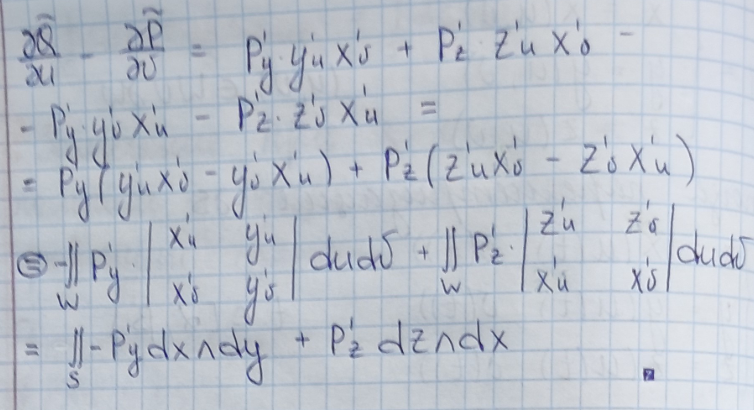 ∂Q̃/∂u - ∂P̃/∂v = P'y·y'u x'v + P'z·z'u x'v -
- P'y·y'v x'u - P'z·z'v x'u =
= P'y(y'u x'v - y'v x'u) + P'z(z'u x'v - z'v x'u)
⊜ -∬_W P'y·|x'u y'u; x'v y'v| du dv + ∬_W P'z·|z'u z'v; x'u x'v| du dv
= ∬_S -P'y dx∧dy + P'z dz∧dx